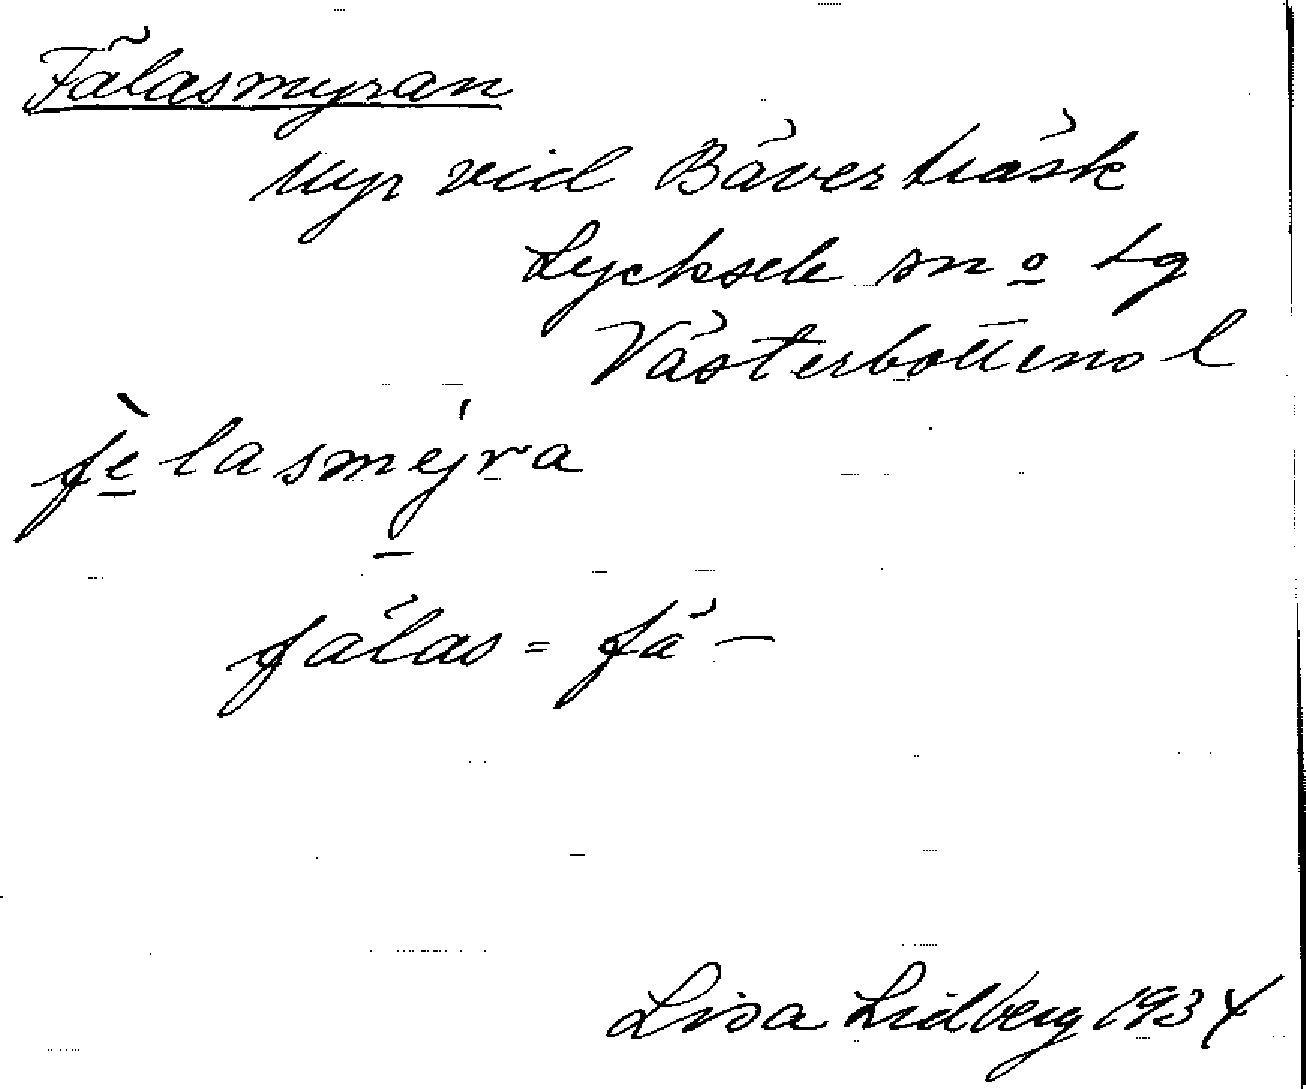 Fälasmyran
Myr vid Bäverträsk
Lycksele sn o tg
Västerbottens l
fè̱lasmýra
fälas = fä –
Lisa Lidberg 1934